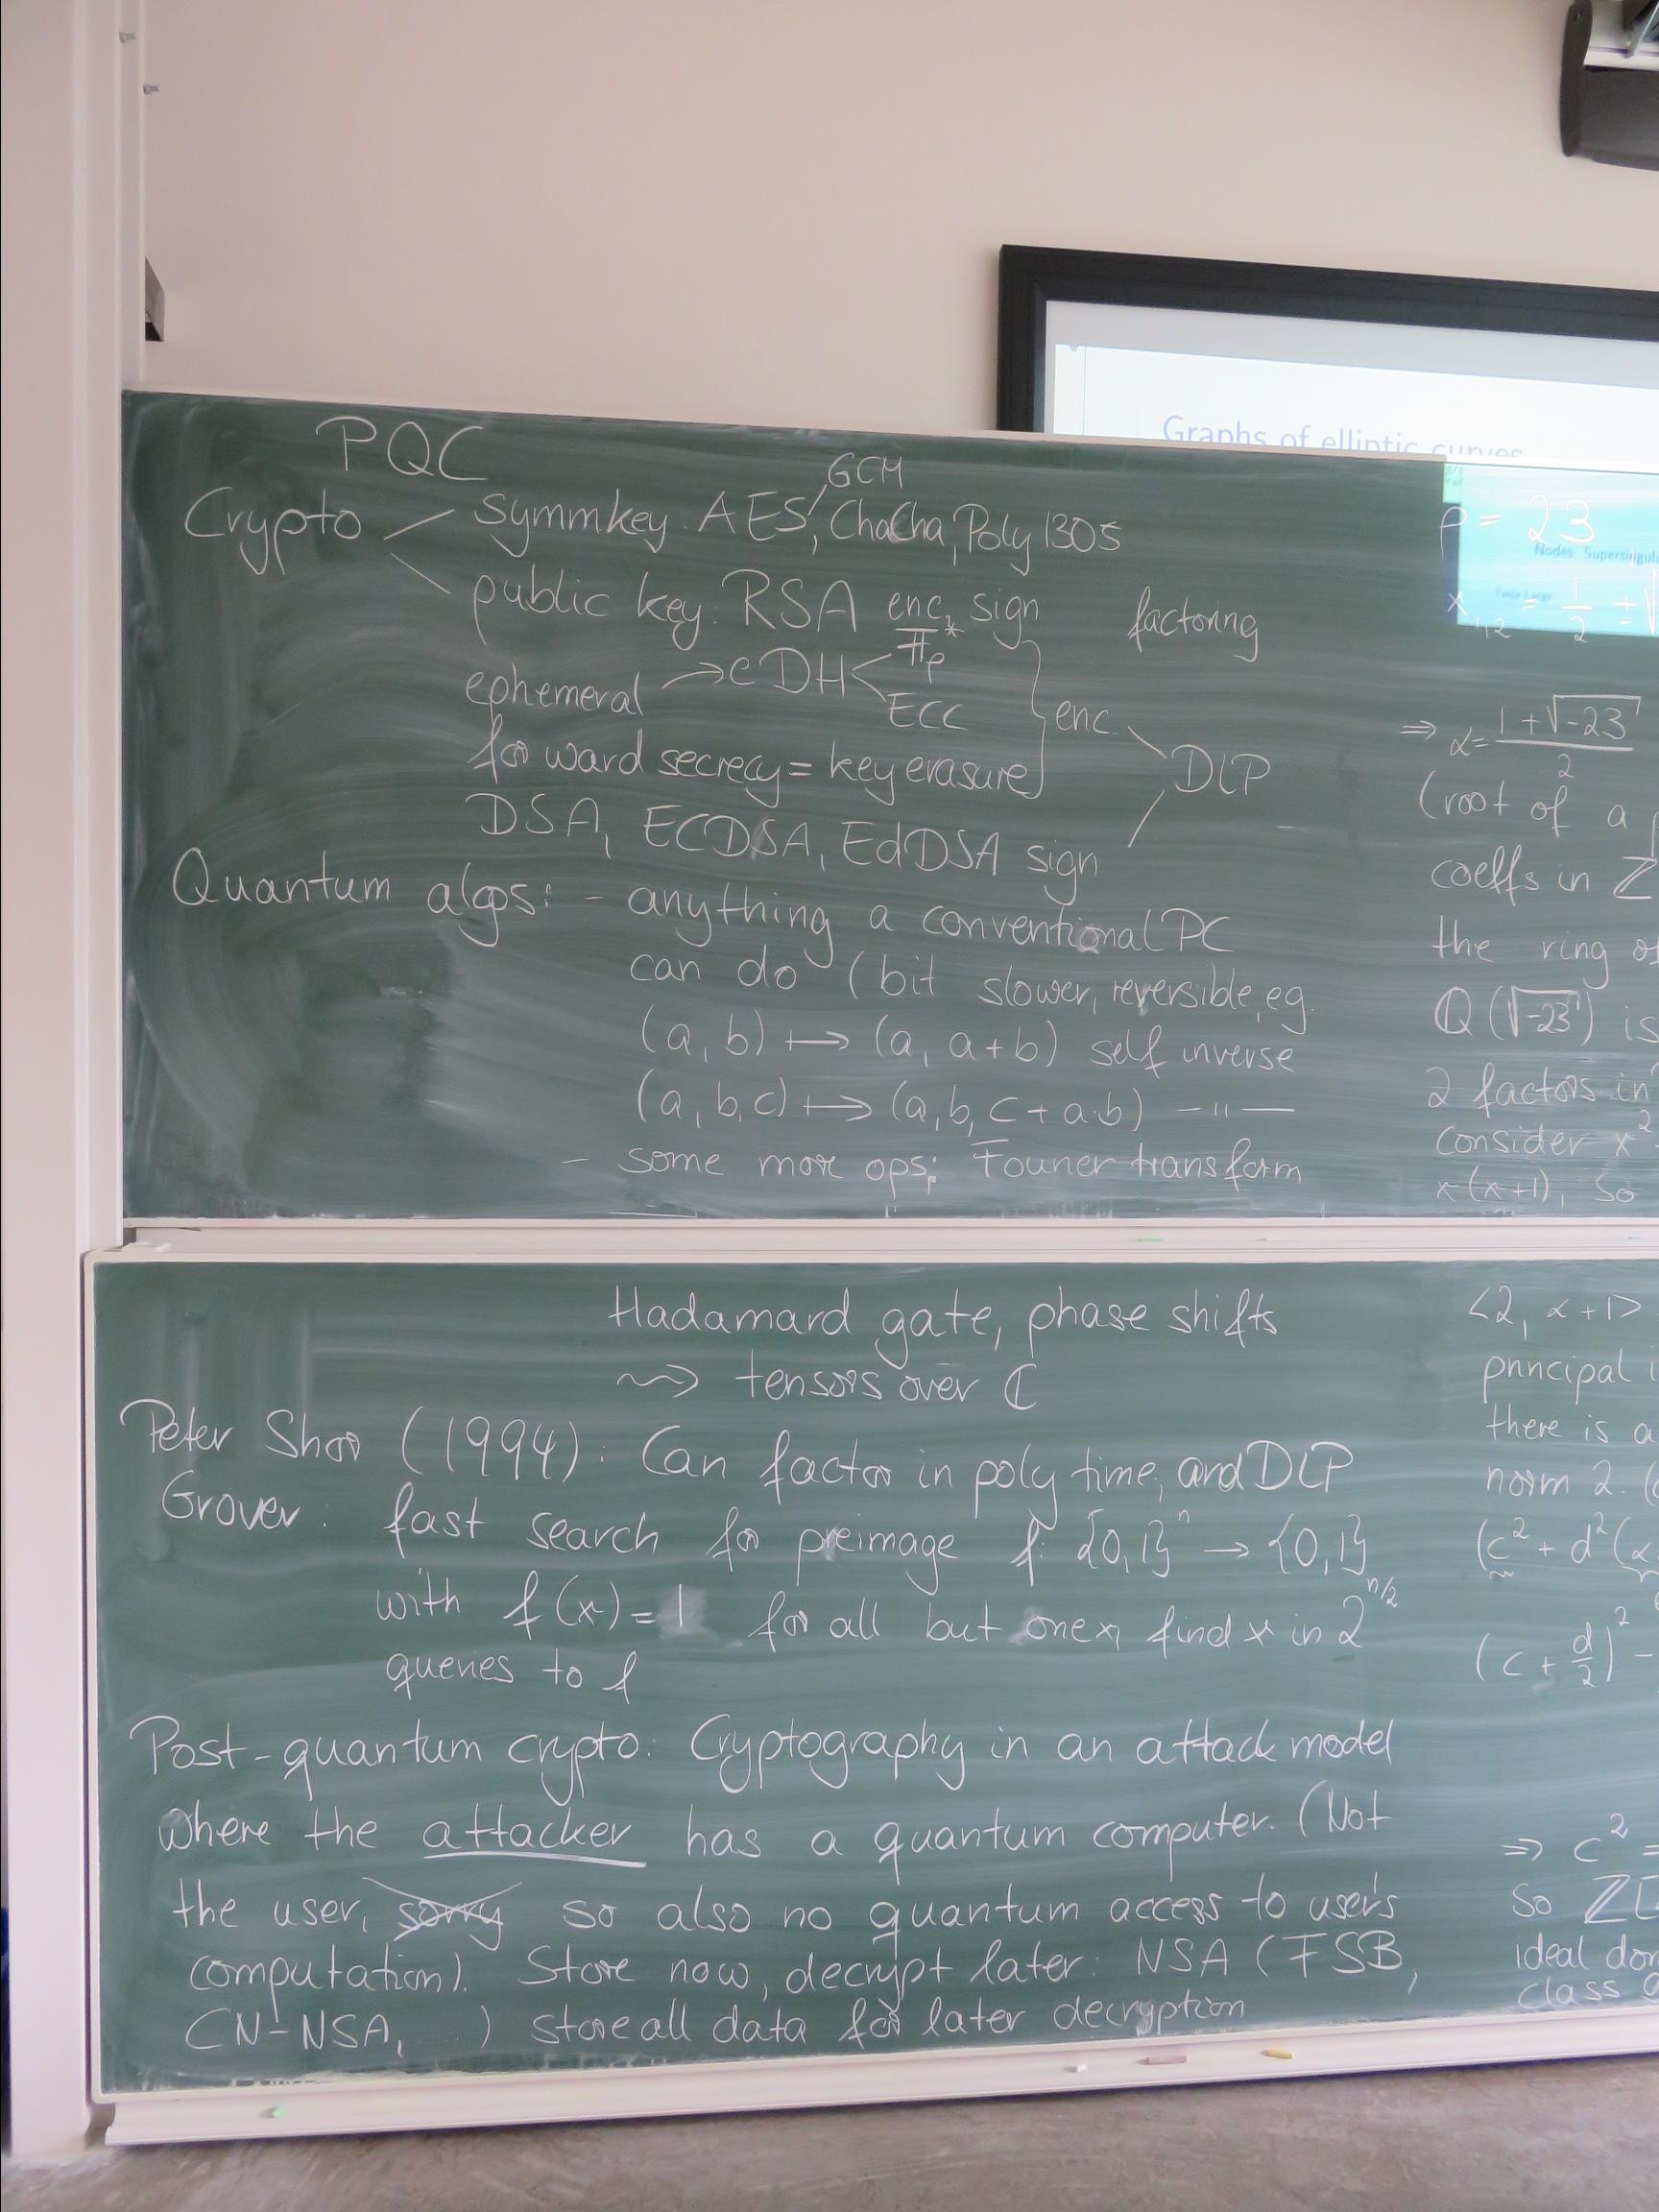 Graphs of elliptic curves
PQC
GCM
Crypto symmkey: AES, ChaCha, Poly1305
public key: RSA enc, sign factoring
ephemeral → eDH < 𝔽p*
ECC
enc
forward secrecy = key erasure
DLP
DSA, ECDSA, EdDSA sign
Quantum algs: - anything a conventional PC
can do (bit slower, reversible, eg.
(a, b) ↦ (a, a+b) self inverse
(a, b, c) ↦ (a, b, c + a·b) — " —
- some more ops: Fourier transform
Hadamard gate, phase shifts
⇝ tensors over ℂ
Peter Shor (1994): Can factor in poly time, and DLP
Grover: fast search for preimage f: {0,1}^n → {0,1}
with f(x) = 1 for all but one x, find x in 2^n/2
queries to f
Post-quantum crypto: Cryptography in an attack model
where the attacker has a quantum computer. (Not
the user, sorry so also no quantum access to user's
computation). Store now, decrypt later: NSA (FSB,
CN-NSA, ) store all data for later decryption
p = 23
Nodes: Supersingul
Tanja Lange
x 1,2 = 1/2 ± √
⇒ α = (1+√-23)/2
(root of a
coeffs in ℤ
the ring of
ℚ(√-23) is
2 factors in
consider x²
x(x+1), so
<2, α+1>
principal i
there is a
norm 2. (
(c² + d²(α
(c + d/2)² -
⇒ c² =
So ℤ[
ideal dom
class g